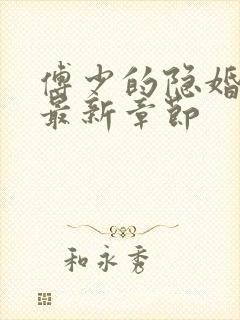 傅少的隐婚
最新章节
和永秀